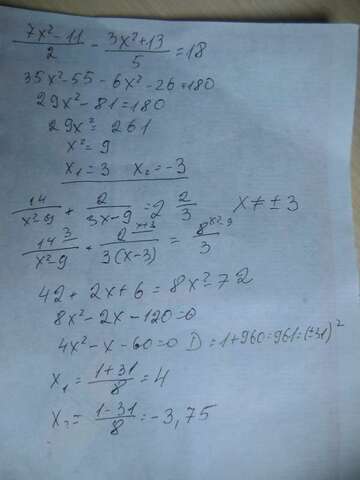 (7x² - 11)/2 - (3x² + 13)/5 = 18
35x² - 55 - 6x² - 26 = 180
29x² - 81 = 180
29x² = 261
x² = 9
x₁ = 3 x₂ = -3
14/(x² - 9) + 2/(3x - 9) = 2 2/3 x ≠ ± 3
14 3/(x² - 9) + 2 x+3/(3(x - 3)) = 8 x²-9/3
42 + 2x + 6 = 8x² - 72
8x² - 2x - 120 = 0
4x² - x - 60 = 0 D = 1 + 960 = 961 = (±31)²
x₁ = (1 + 31)/8 = 4
x₂ = (1 - 31)/8 = -3,75